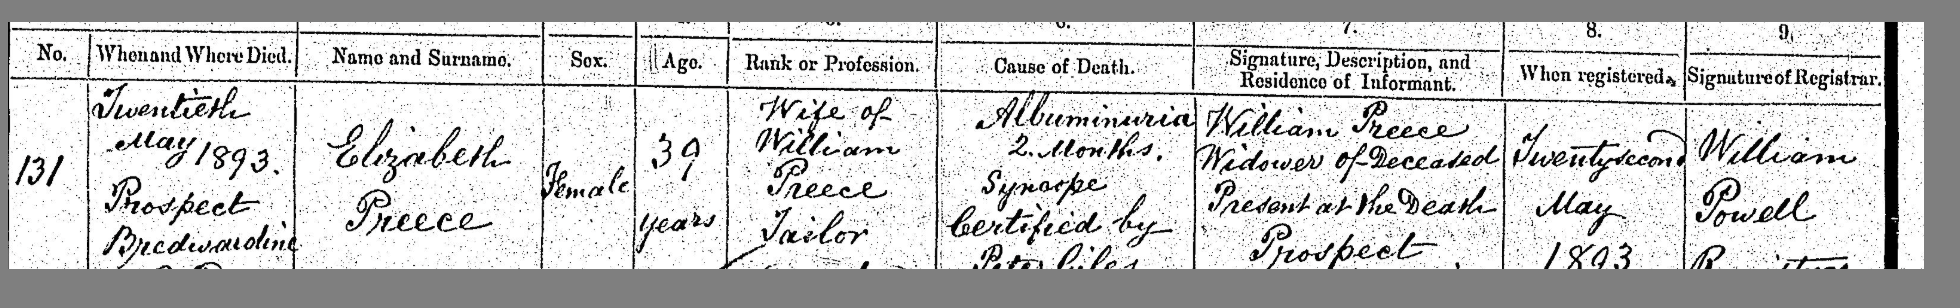 6.
7.
8.
9.
No.
When and Where Died.
Name and Surname.
Sex.
Age.
Rank or Profession.
Cause of Death.
Signature, Description, and
Residence of Informant.
When registered.
Signature of Registrar.
131
Twentieth
May 1893.
Prospect
Bredwardine
Elizabeth
Preece
Female
39
years
Wife of
William
Preece
Tailor
Albuminuria
2. Months.
Syncope
Certified by
Peter Giles
William Preece
Widower of Deceased
Present at the Death
Prospect
Twentysecond
May
1893
William
Powell
Registrar